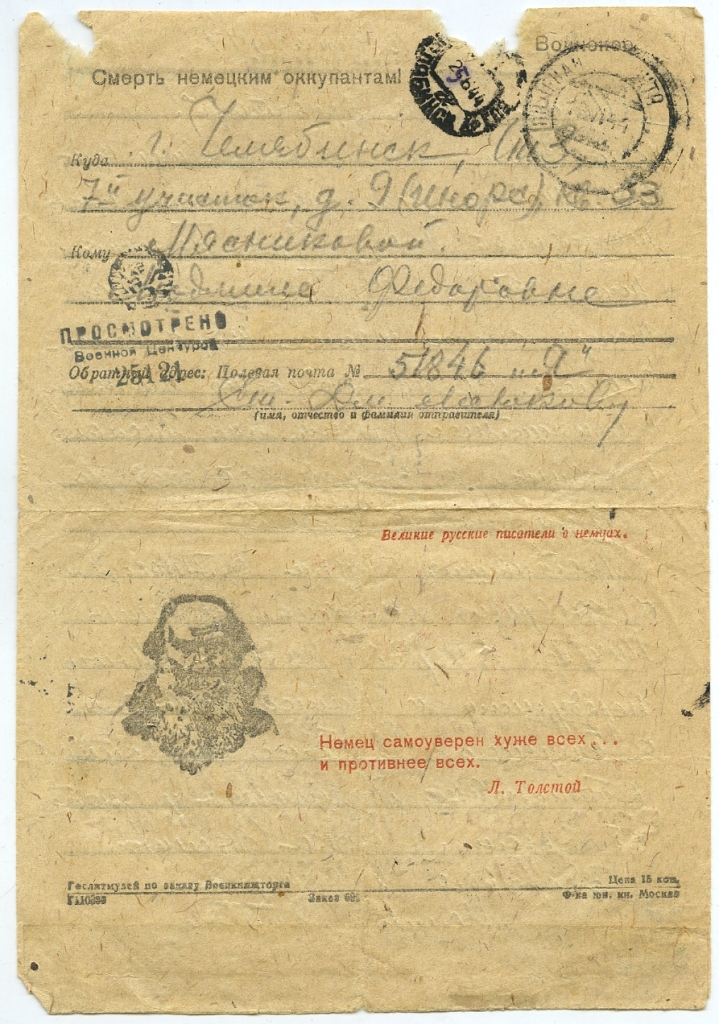 Воинское
Смерть немецким оккупантам!
Куда г. Челябинск,
7й участок, д. 9 кв. 33
Кому Мясниковой
Людмиле Федоровне
ПРОСМОТРЕНО
Военной Цензурой
25121
Обратный адрес: Полевая почта № 51846 „Я"
(имя, отчество и фамилия отправителя)
Великие русские писатели о немцах.
Немец самоуверен хуже всех...
и противнее всех.
Л. Толстой
Гослитмузей по заказу Военкнижторга Цена 15 коп.
Заказ Ф-ка юн. кн. Москва